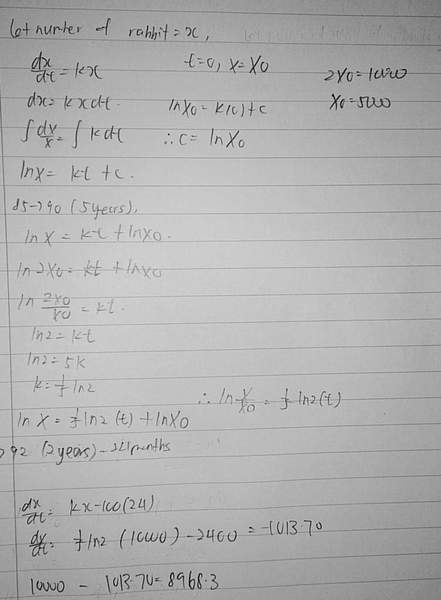 let number of rabbit = x,
dx/dt = kx    t=0, x=X0    2X0 = 10000
dx = kxdt.    lnX0 = k(0)+c    X0 = 5000
∫ dx/x = ∫ kdt    ∴ c = lnX0
lnx = kt + c.
85→90 (5years),
ln x = kt + lnX0.
ln 2X0 = kt + lnX0
ln 2X0/X0 = kt.
ln2 = kt
ln2 = 5k
k = 1/5 ln2    ∴ ln x/X0 = 1/5 ln2(t)
ln x = 1/5 ln2 (t) + lnX0
→92 (2years) - 24 months
dx/dt = kx-100(24)
dx/dt = 1/5 ln2 (10000) - 2400 = -1013.70
10000 - 1013.70 = 8968.3